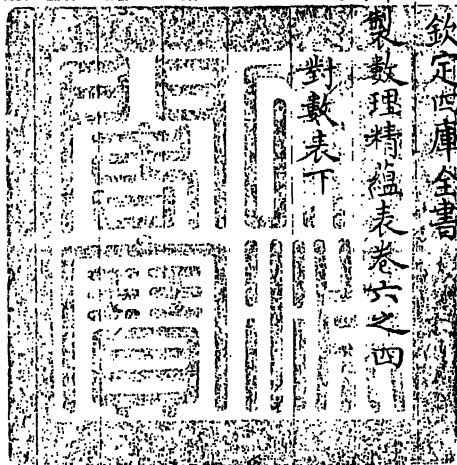 欽定四庫全書
製數理精蘊表卷六之四
對數表下